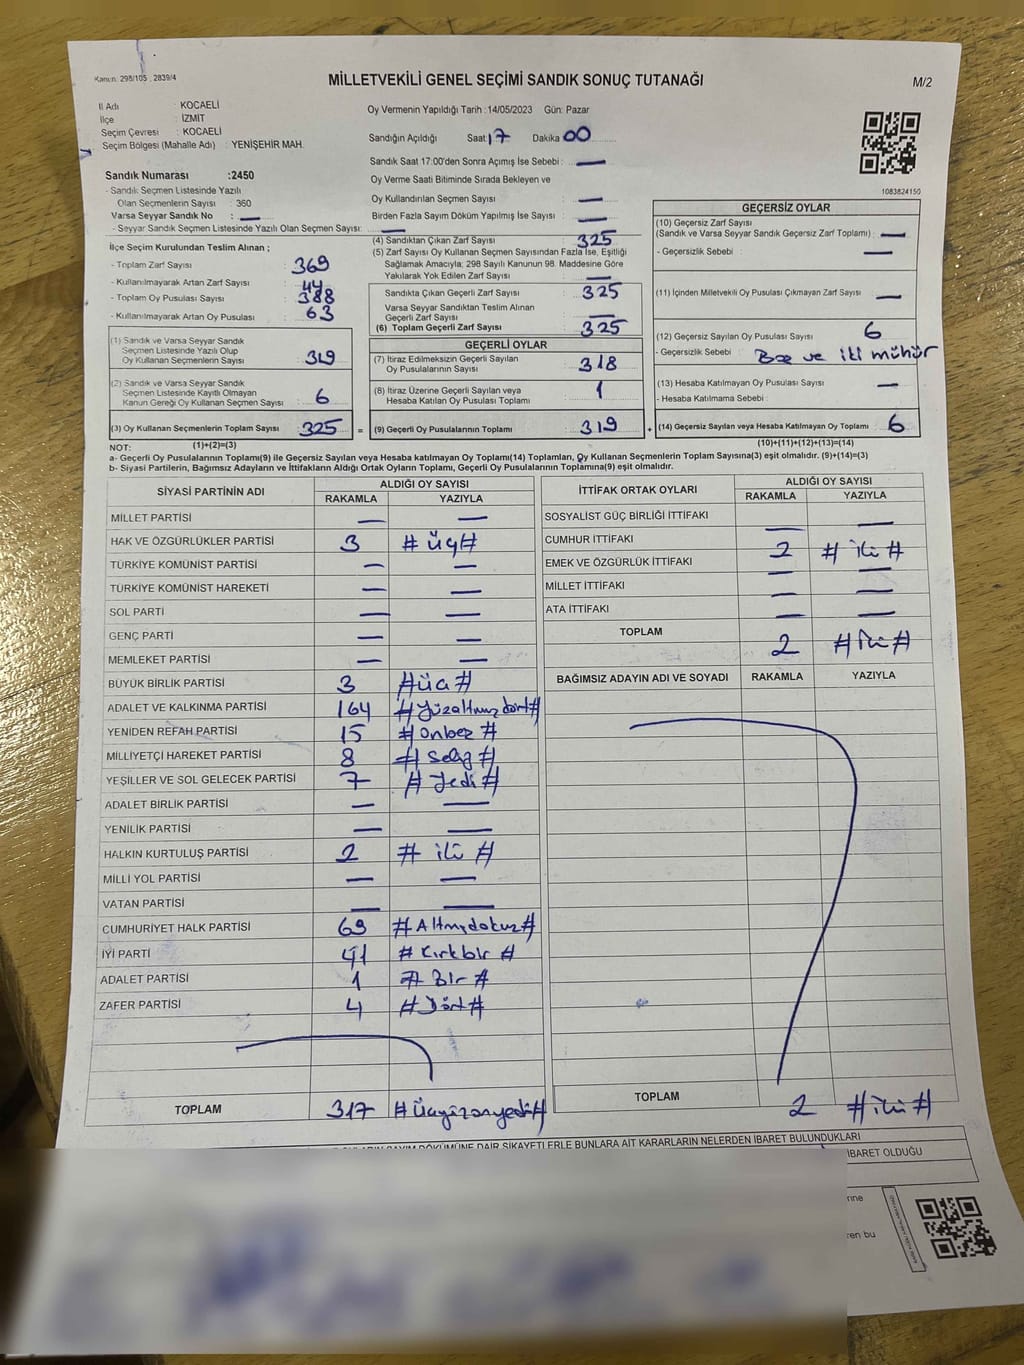 Kanun: 298/105 , 2839/4
MİLLETVEKİLİ GENEL SEÇİMİ SANDIK SONUÇ TUTANAĞI
M/2
İl Adı : KOCAELİ
İlçe : İZMİT
Seçim Çevresi : KOCAELİ
Seçim Bölgesi (Mahalle Adı) : YENİŞEHİR MAH.
Oy Vermenin Yapıldığı Tarih :14/05/2023 Gün: Pazar
Sandığın Açıldığı Saat: 17 Dakika 00
Sandık Saat 17:00'den Sonra Açımış İse Sebebi : —
Oy Verme Saati Bitiminde Sırada Bekleyen ve
Oy Kullandırılan Seçmen Sayısı : —
Birden Fazla Sayım Döküm Yapılmış İse Sayısı : —
1083824150
Sandık Numarası :2450
- Sandık Seçmen Listesinde Yazılı
Olan Seçmenlerin Sayısı : 360
Varsa Seyyar Sandık No : —
- Seyyar Sandık Seçmen Listesinde Yazılı Olan Seçmen Sayısı: —
İlçe Seçim Kurulundan Teslim Alınan ;
- Toplam Zarf Sayısı : 369
- Kullanılmayarak Artan Zarf Sayısı : 44
- Toplam Oy Pusulası Sayısı : 388
- Kullanılmayarak Artan Oy Pusulası : 63
(1) Sandık ve Varsa Seyyar Sandık
Seçmen Listesinde Yazılı Olup
Oy Kullanan Seçmenlerin Sayısı : 319
(2) Sandık ve Varsa Seyyar Sandık
Seçmen Listesinde Kayıtlı Olmayan
Kanun Gereği Oy Kullanan Seçmen Sayısı : 6
(3) Oy Kullanan Seçmenlerin Toplam Sayısı : 325
(1)+(2)=(3)
(4) Sandıktan Çıkan Zarf Sayısı : 325
(5) Zarf Sayısı Oy Kullanan Seçmen Sayısından Fazla İse, Eşitliği
Sağlamak Amacıyla; 298 Sayılı Kanunun 98. Maddesine Göre
Yakılarak Yok Edilen Zarf Sayısı : —
Sandıkta Çıkan Geçerli Zarf Sayısı : 325
Varsa Seyyar Sandıktan Teslim Alınan
Geçerli Zarf Sayısı : —
(6) Toplam Geçerli Zarf Sayısı : 325
GEÇERLİ OYLAR
(7) İtiraz Edilmeksizin Geçerli Sayılan
Oy Pusulalarının Sayısı : 318
(8) İtiraz Üzerine Geçerli Sayılan veya
Hesaba Katılan Oy Pusulası Toplamı : 1
= (9) Geçerli Oy Pusulalarının Toplamı : 319
GEÇERSİZ OYLAR
(10) Geçersiz Zarf Sayısı
(Sandık ve Varsa Seyyar Sandık Geçersiz Zarf Toplamı) : —
- Geçersizlik Sebebi : —
(11) İçinden Milletvekili Oy Pusulası Çıkmayan Zarf Sayısı : —
(12) Geçersiz Sayılan Oy Pusulası Sayısı : 6
- Geçersizlik Sebebi : Boş ve iki mühür
(13) Hesaba Katılmayan Oy Pusulası Sayısı : —
- Hesaba Katılmama Sebebi :
+ (14) Geçersiz Sayılan veya Hesaba Katılmayan Oy Toplamı : 6
(10)+(11)+(12)+(13)=(14)
NOT:
a- Geçerli Oy Pusulalarının Toplamı(9) ile Geçersiz Sayılan veya Hesaba katılmayan Oy Toplamı(14) Toplamları, Oy Kullanan Seçmenlerin Toplam Sayısına(3) eşit olmalıdır. (9)+(14)=(3)
b- Siyasi Partilerin, Bağımsız Adayların ve İttifakların Aldığı Ortak Oyların Toplamı, Geçerli Oy Pusulalarının Toplamına(9) eşit olmalıdır.
SİYASİ PARTİNİN ADI ALDIĞI OY SAYISI
RAKAMLA YAZIYLA
MİLLET PARTİSİ — —
HAK VE ÖZGÜRLÜKLER PARTİSİ 3 # üç #
TÜRKİYE KOMÜNİST PARTİSİ — —
TÜRKİYE KOMÜNİST HAREKETİ — —
SOL PARTİ — —
GENÇ PARTİ — —
MEMLEKET PARTİSİ — —
BÜYÜK BİRLİK PARTİSİ 3 # üç #
ADALET VE KALKINMA PARTİSİ 164 # Yüzaltmışdört #
YENİDEN REFAH PARTİSİ 15 # onbeş #
MİLLİYETÇİ HAREKET PARTİSİ 8 # sekiz #
YEŞİLLER VE SOL GELECEK PARTİSİ 7 # Yedi #
ADALET BİRLİK PARTİSİ — —
YENİLİK PARTİSİ — —
HALKIN KURTULUŞ PARTİSİ 2 # iki #
MİLLİ YOL PARTİSİ — —
VATAN PARTİSİ — —
CUMHURİYET HALK PARTİSİ 69 # Altmışdokuz #
İYİ PARTİ 41 # Kırkbir #
ADALET PARTİSİ 1 # Bir #
ZAFER PARTİSİ 4 # Dört #
TOPLAM 317 # üçyüzonyedi #
İTTİFAK ORTAK OYLARI ALDIĞI OY SAYISI
RAKAMLA YAZIYLA
SOSYALİST GÜÇ BİRLİĞİ İTTİFAKI — —
CUMHUR İTTİFAKI 2 # iki #
EMEK VE ÖZGÜRLÜK İTTİFAKI — —
MİLLET İTTİFAKI — —
ATA İTTİFAKI
TOPLAM 2 # iki #
BAĞIMSIZ ADAYIN ADI VE SOYADI RAKAMLA YAZIYLA
TOPLAM 2 # iki #
SAYIM DÖKÜMÜNE DAİR ŞİKAYETLERLE BUNLARA AİT KARARLARIN NELERDEN İBARET BULUNDUKLARI
İBARET OLDUĞU